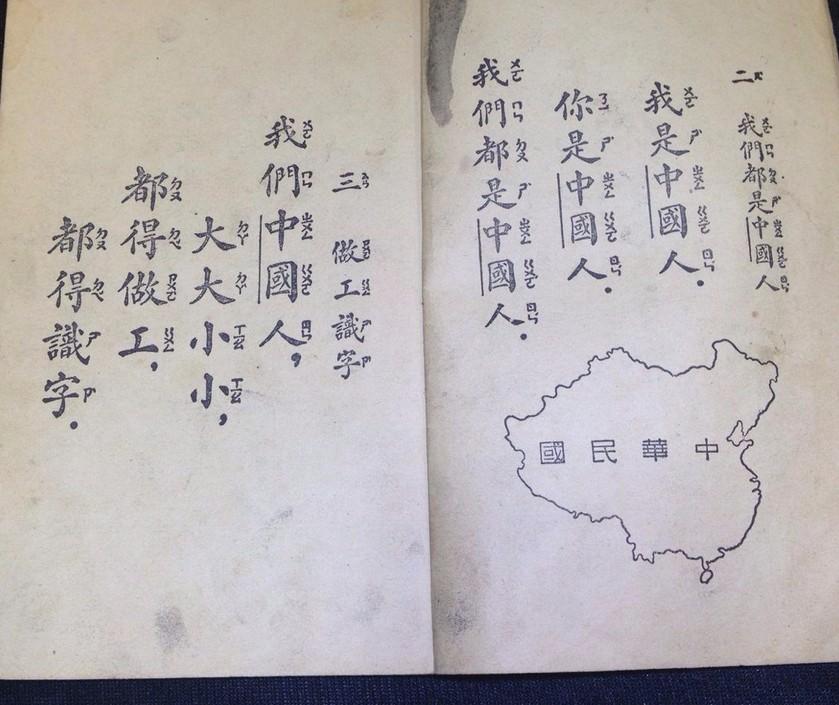 二
我們都是中國人
我是中國人．
你是中國人．
我們都是中國人．
中華民國
三
做工識字
我們中國人，
大大小小，
都得做工，
都得識字．